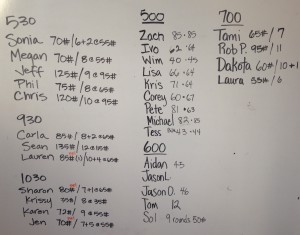 530
Sonia 70#/6+2@55#
Megan 70#/8@55#
Jeff 125#/9@95#
Phil 75#/8@65#
Chris 120#/10@95#
930
Carla 85#/8+2@65#
Sean 135#/12@115#
Lauren 85#(1)/10+4@65#
1030
Sharon 80#/7+1@65#
Krissy 55#/8@35#
Karen 72#/9@55#
Jen 70#/7+5@55#
500
Zach 85·85
Ivo 62·64
Wim 40·45
Lisa 66·64
Kris 71·64
Corey 60·67
Pete 81·63
Michael 82·85
Tess 43·44
600
Aidan 43
Jason L
Jason D. 46
Tom 12
Sol 9 rounds 50#
700
Tami 65#/7
Rob P. 95#/11
Dakota 60#/10+1
Laura 55#/6